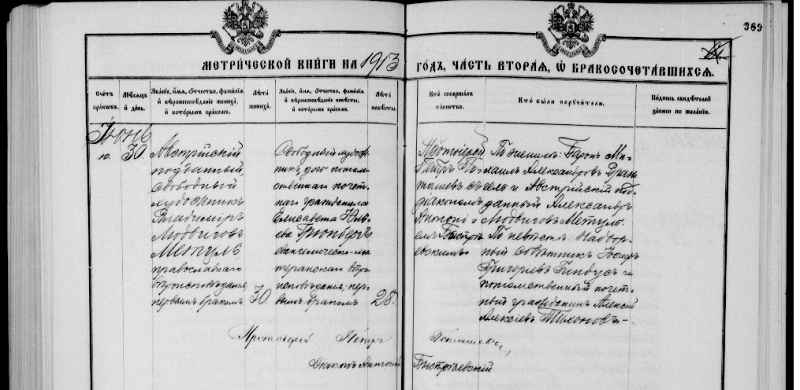 369
МЕТРИ́ЧЕСКОЙ КНИ́ГИ НА 1913
ГОДЪ, ЧАСТЬ ВТОРАЯ, Ѡ БРАКОСОЧЕТА́ВШИХСЯ.
Счетъ браковъ.
Мѣсяцъ и день.
Званіе, имя, отчество, фамилія
и вѣроисповѣданіе жениха,
и которымъ бракомъ.
Лѣта жениха.
Званіе, имя, отчество, фамилія
и вѣроисповѣданіе невѣсты,
и которымъ бракомъ.
Лѣта невѣсты.
Кто совершалъ таинство.
Кто были поручители.
Подпись свидѣтелей записи по желанію.
Іюнь
10.
30
Австрійскій
подданный,
свободный
художникъ
Владиміръ
Людвиговъ
православнаго
вѣроисповѣданія,
первымъ бракомъ
30
Свободный худож-
никъ, дочь потом-
ственнаго почет-
наго гражданина
Елисавета
евангелическо-лю-
теранскаго вѣро-
исповѣданія; пер-
вымъ бракомъ
28.
Протоіерей
Петръ
съ
діакономъ
По женихѣ: Баронъ Ми-
хаилъ Александровъ
и Австрійскій под-
данный Александръ
Людвиговъ
По невѣстѣ: Надвор-
ный совѣтникъ
Григорьевъ и
потомственный почет-
ный гражданинъ Алексѣй
Алексѣевъ Тихоновъ
Протоіерей Петръ
Діаконъ Антоній